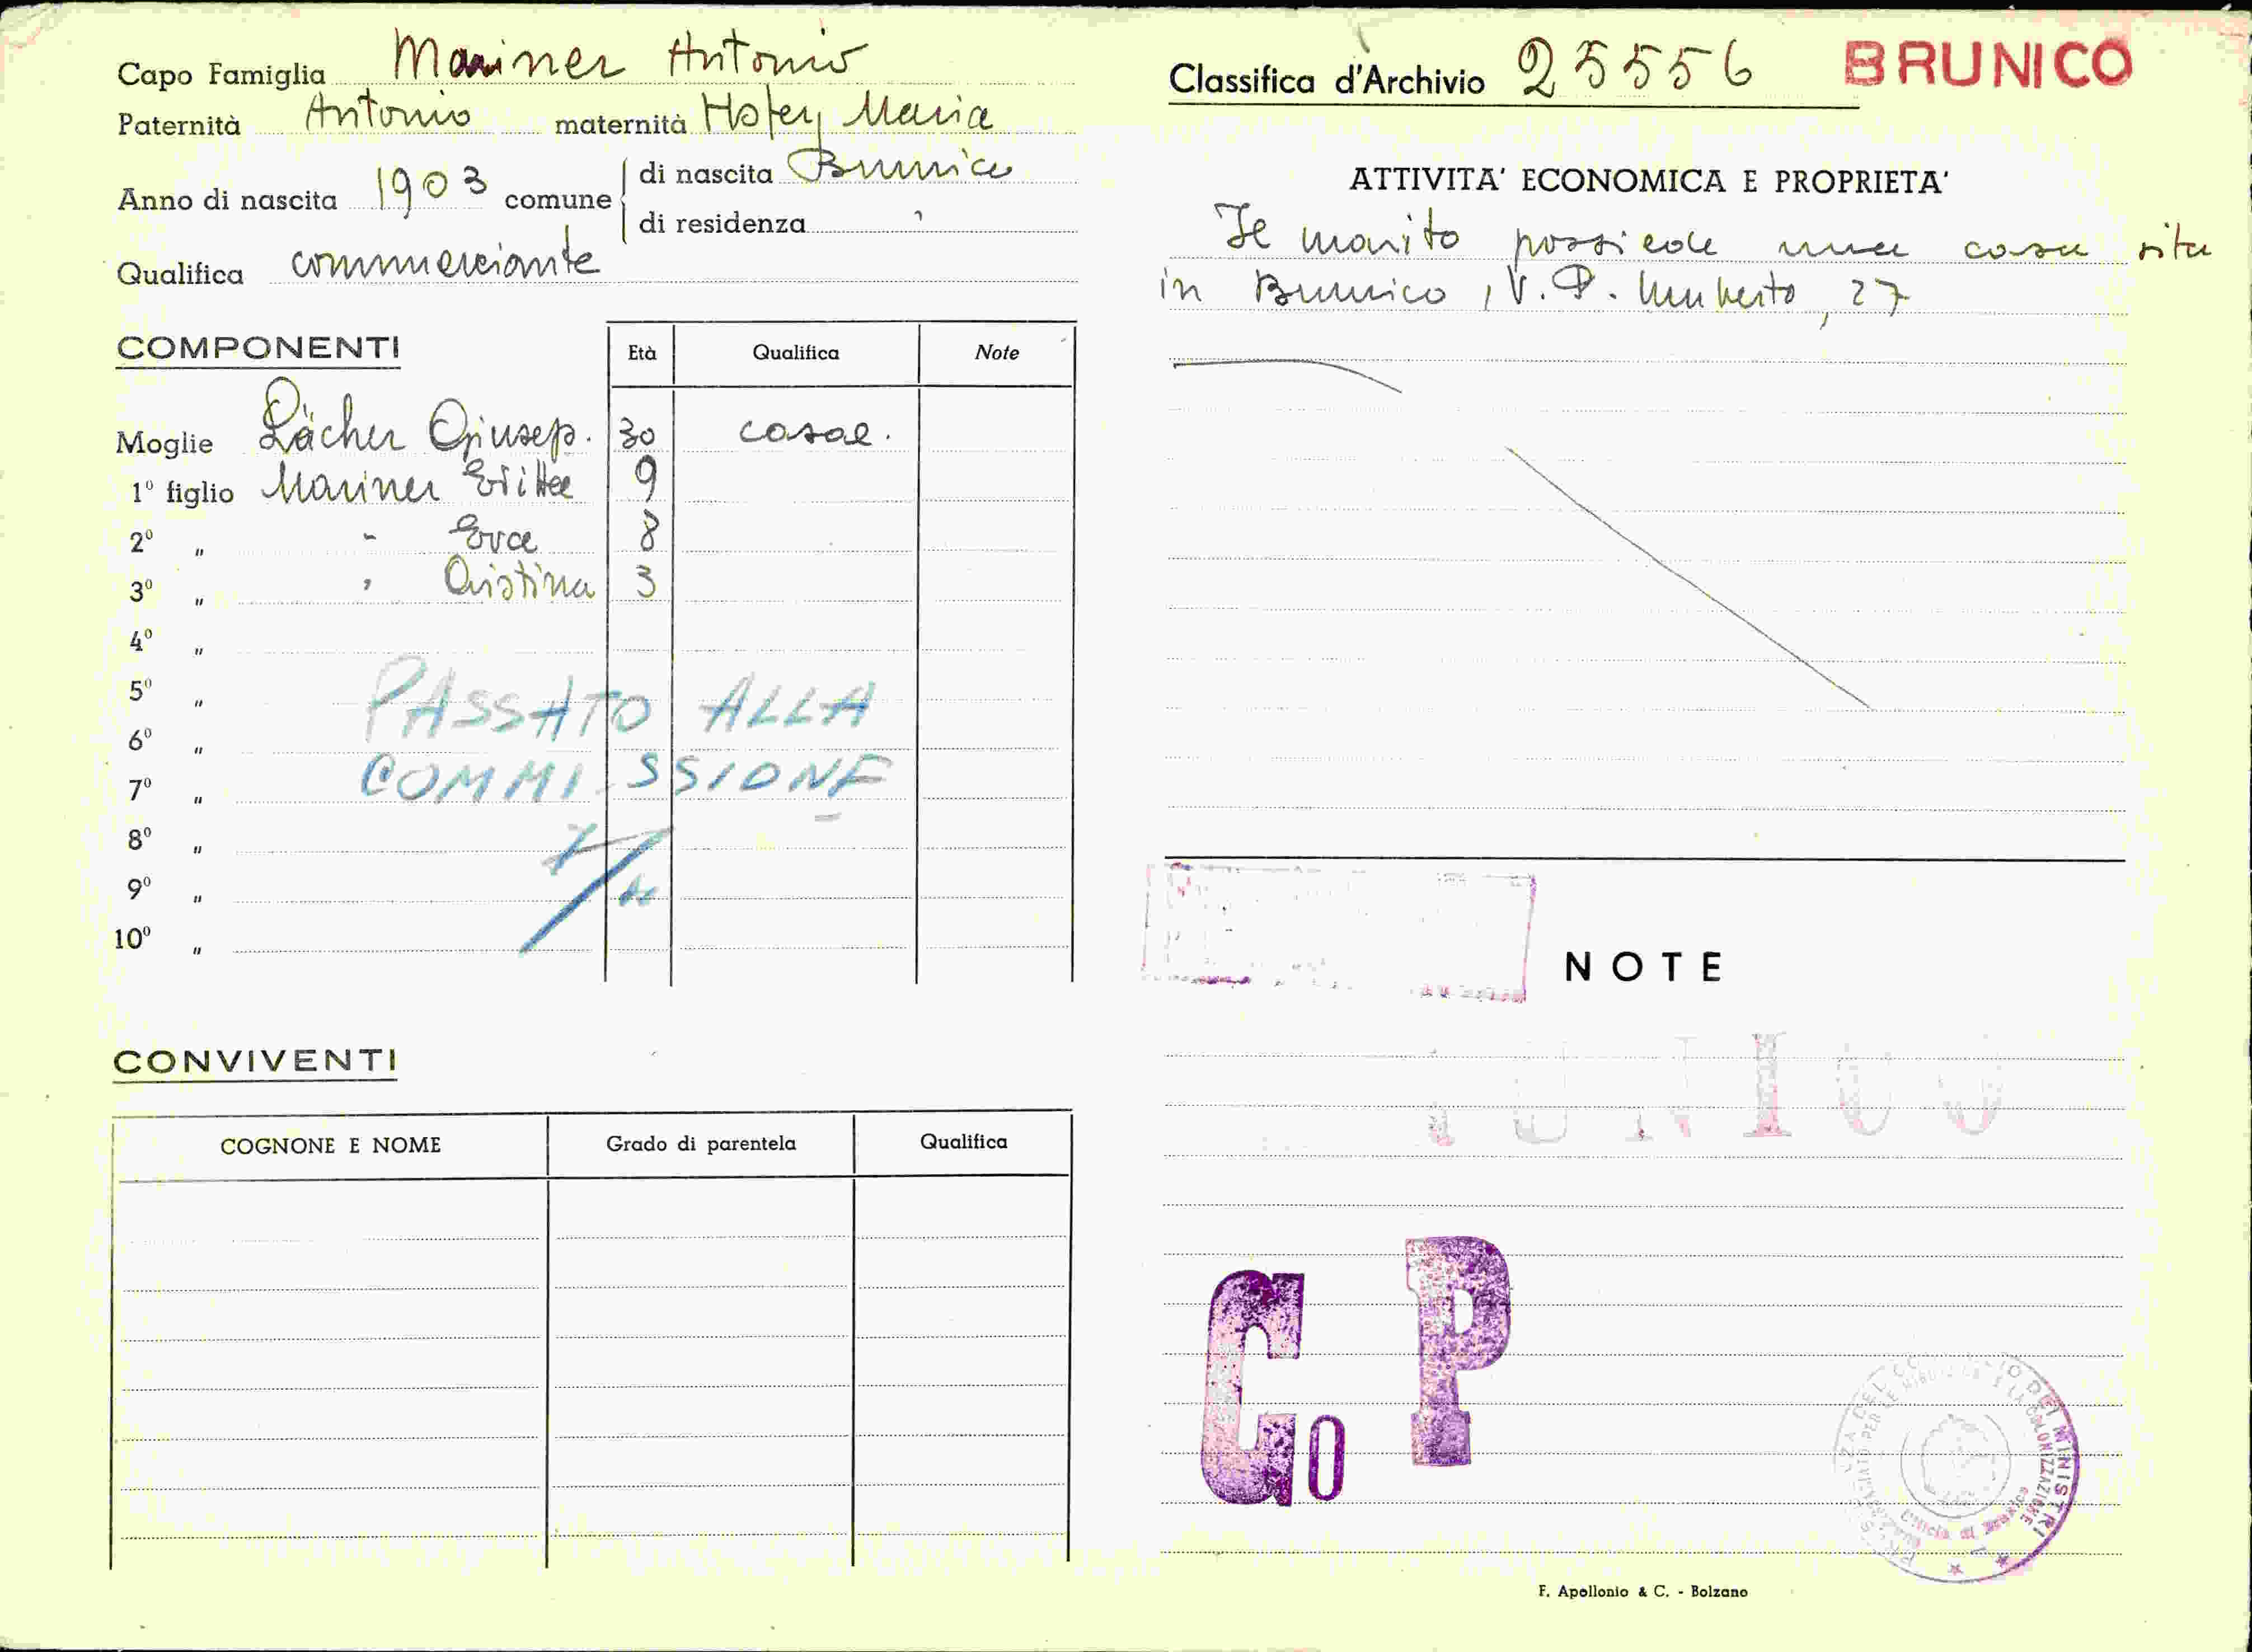 Capo Famiglia Mariner Antonio
Paternità Antonio maternità Hofer Maria
Anno di nascita 1903 comune di nascita Brunico
di residenza "
Qualifica commerciante
COMPONENTI Età Qualifica Note
Moglie Lächer Giusep. 30 casal.
1º figlio Mariner 9
2º " " Eva 8
3º " " Cristina 3
4º "
5º "
6º "
7º "
8º "
9º "
10º "
PASSATO ALLA
COMMISSIONE
CONVIVENTI
COGNONE E NOME Grado di parentela Qualifica
Classifica d'Archivio 25556 BRUNICO
ATTIVITA' ECONOMICA E PROPRIETA'
Il marito possiede una casa sita
in Brunico, V. P. Umberto, 27
NOTE
UNICO
G O P
DEI MINISTRI
COLONIZZAZIONE
F. Apollonio & C. - Bolzano